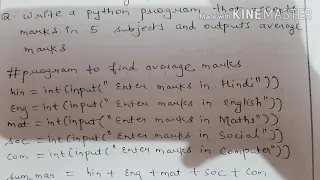 Q. Write a python program that
marks in 5 subjects and outputs average
marks
Made with KINEMASTER
#program to find average marks
hin = int(input("Enter marks in Hindi"))
Eng = int(input("Enter marks in english"))
mat = int(input("Enter marks in Maths"))
soc = int(input("Enter marks in Social"))
com = int(input("Enter marks in Computer"))
sum_mar = hin + Eng + mat + soc + com